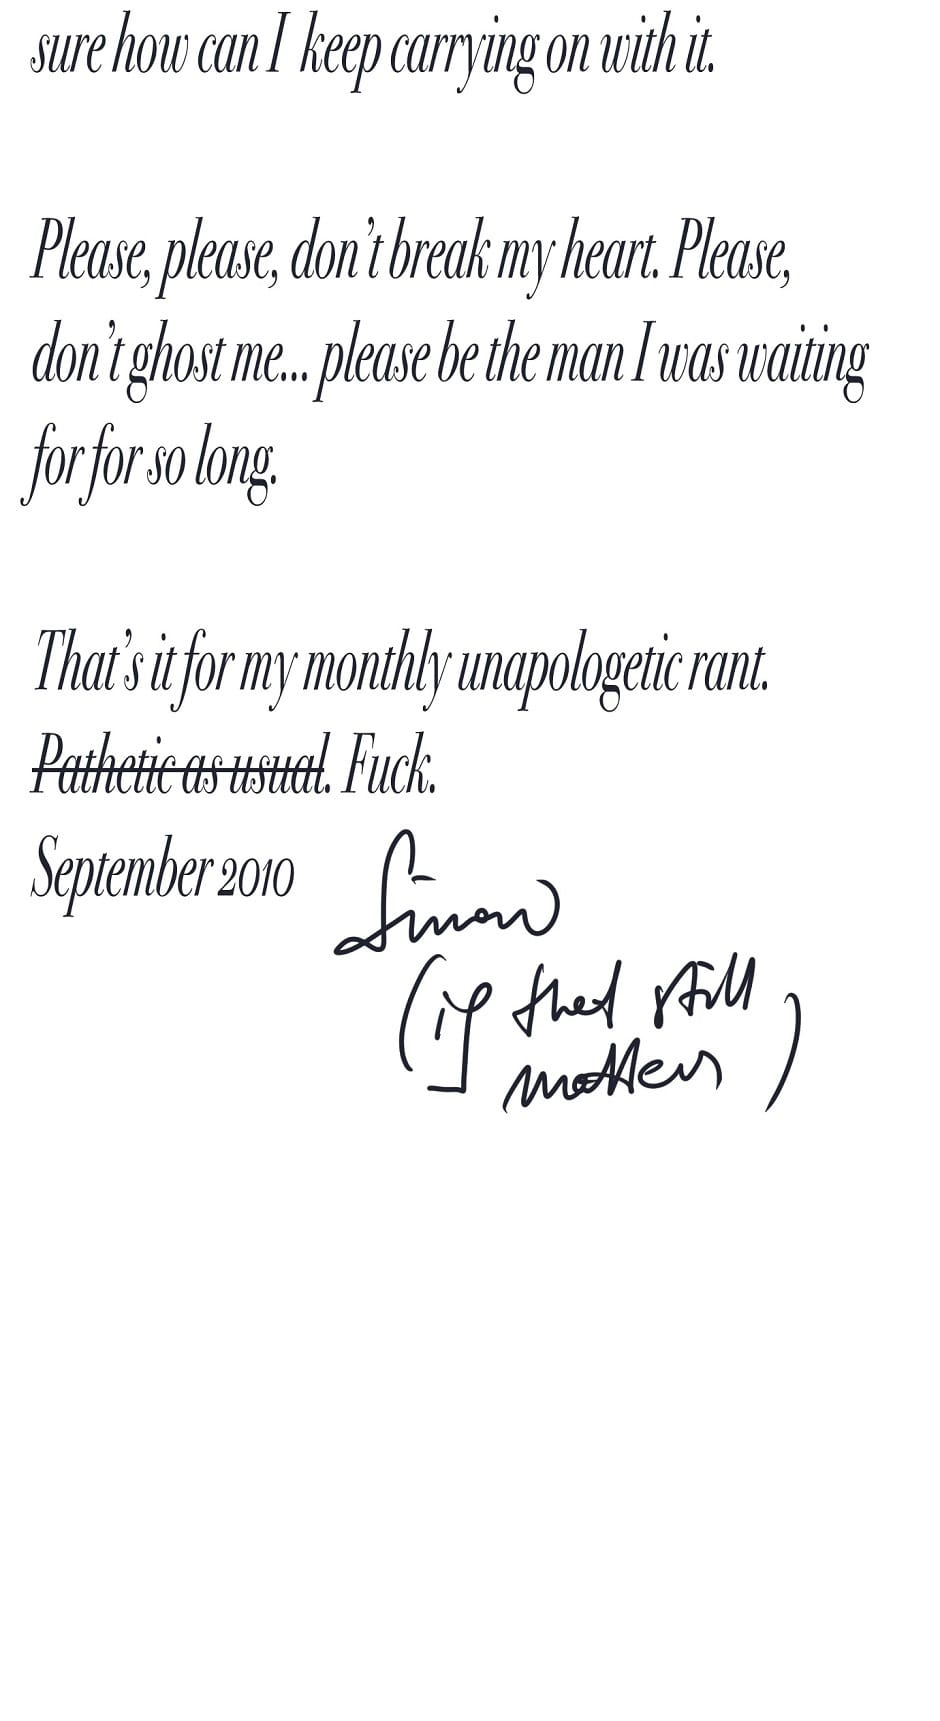 sure how can I keep carrying on with it.
Please, please, don't break my heart. Please,
don't ghost me... please be the man I was waiting
for for so long.
That's it for my monthly unapologetic rant.
Pathetic as usual. Fuck.
September 2010
Simon
(if that still
matters)